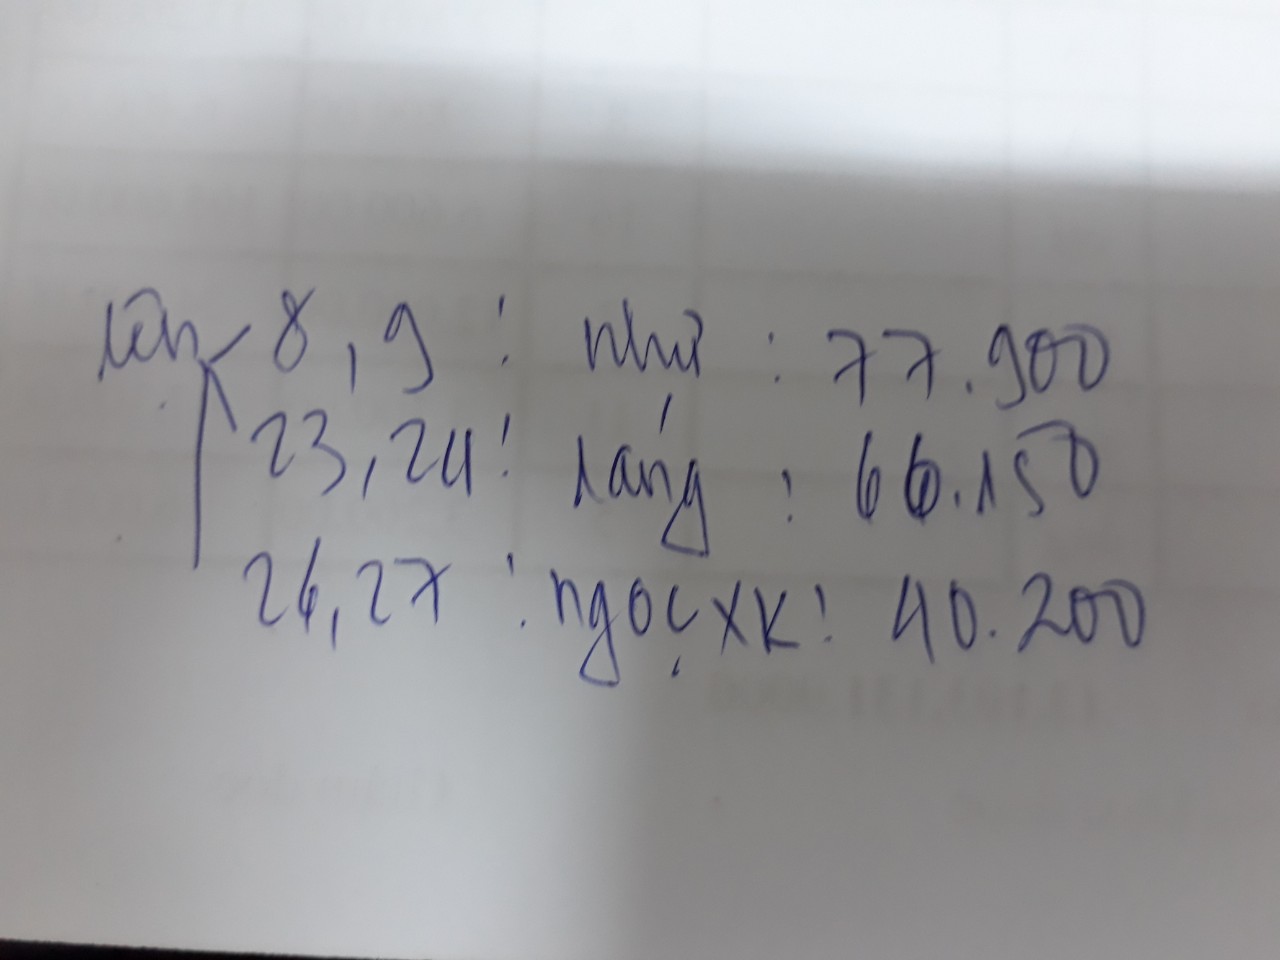 8, 9 : như : 77.900
23, 24 : ráng : 66.150
26, 27 : ngọc XK : 40.200